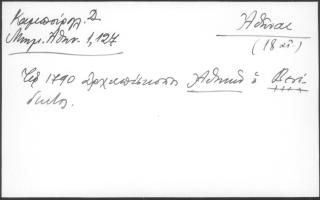 Καμπούρογλ. Δ
Μνημ. Αθην. 1,127
Ἀθῆναι
(18 αἰ.)
Τῷ 1790 ἀρχιεπίσκοπος Ἀθηνῶν ὁ Βενέ-
δικτος.